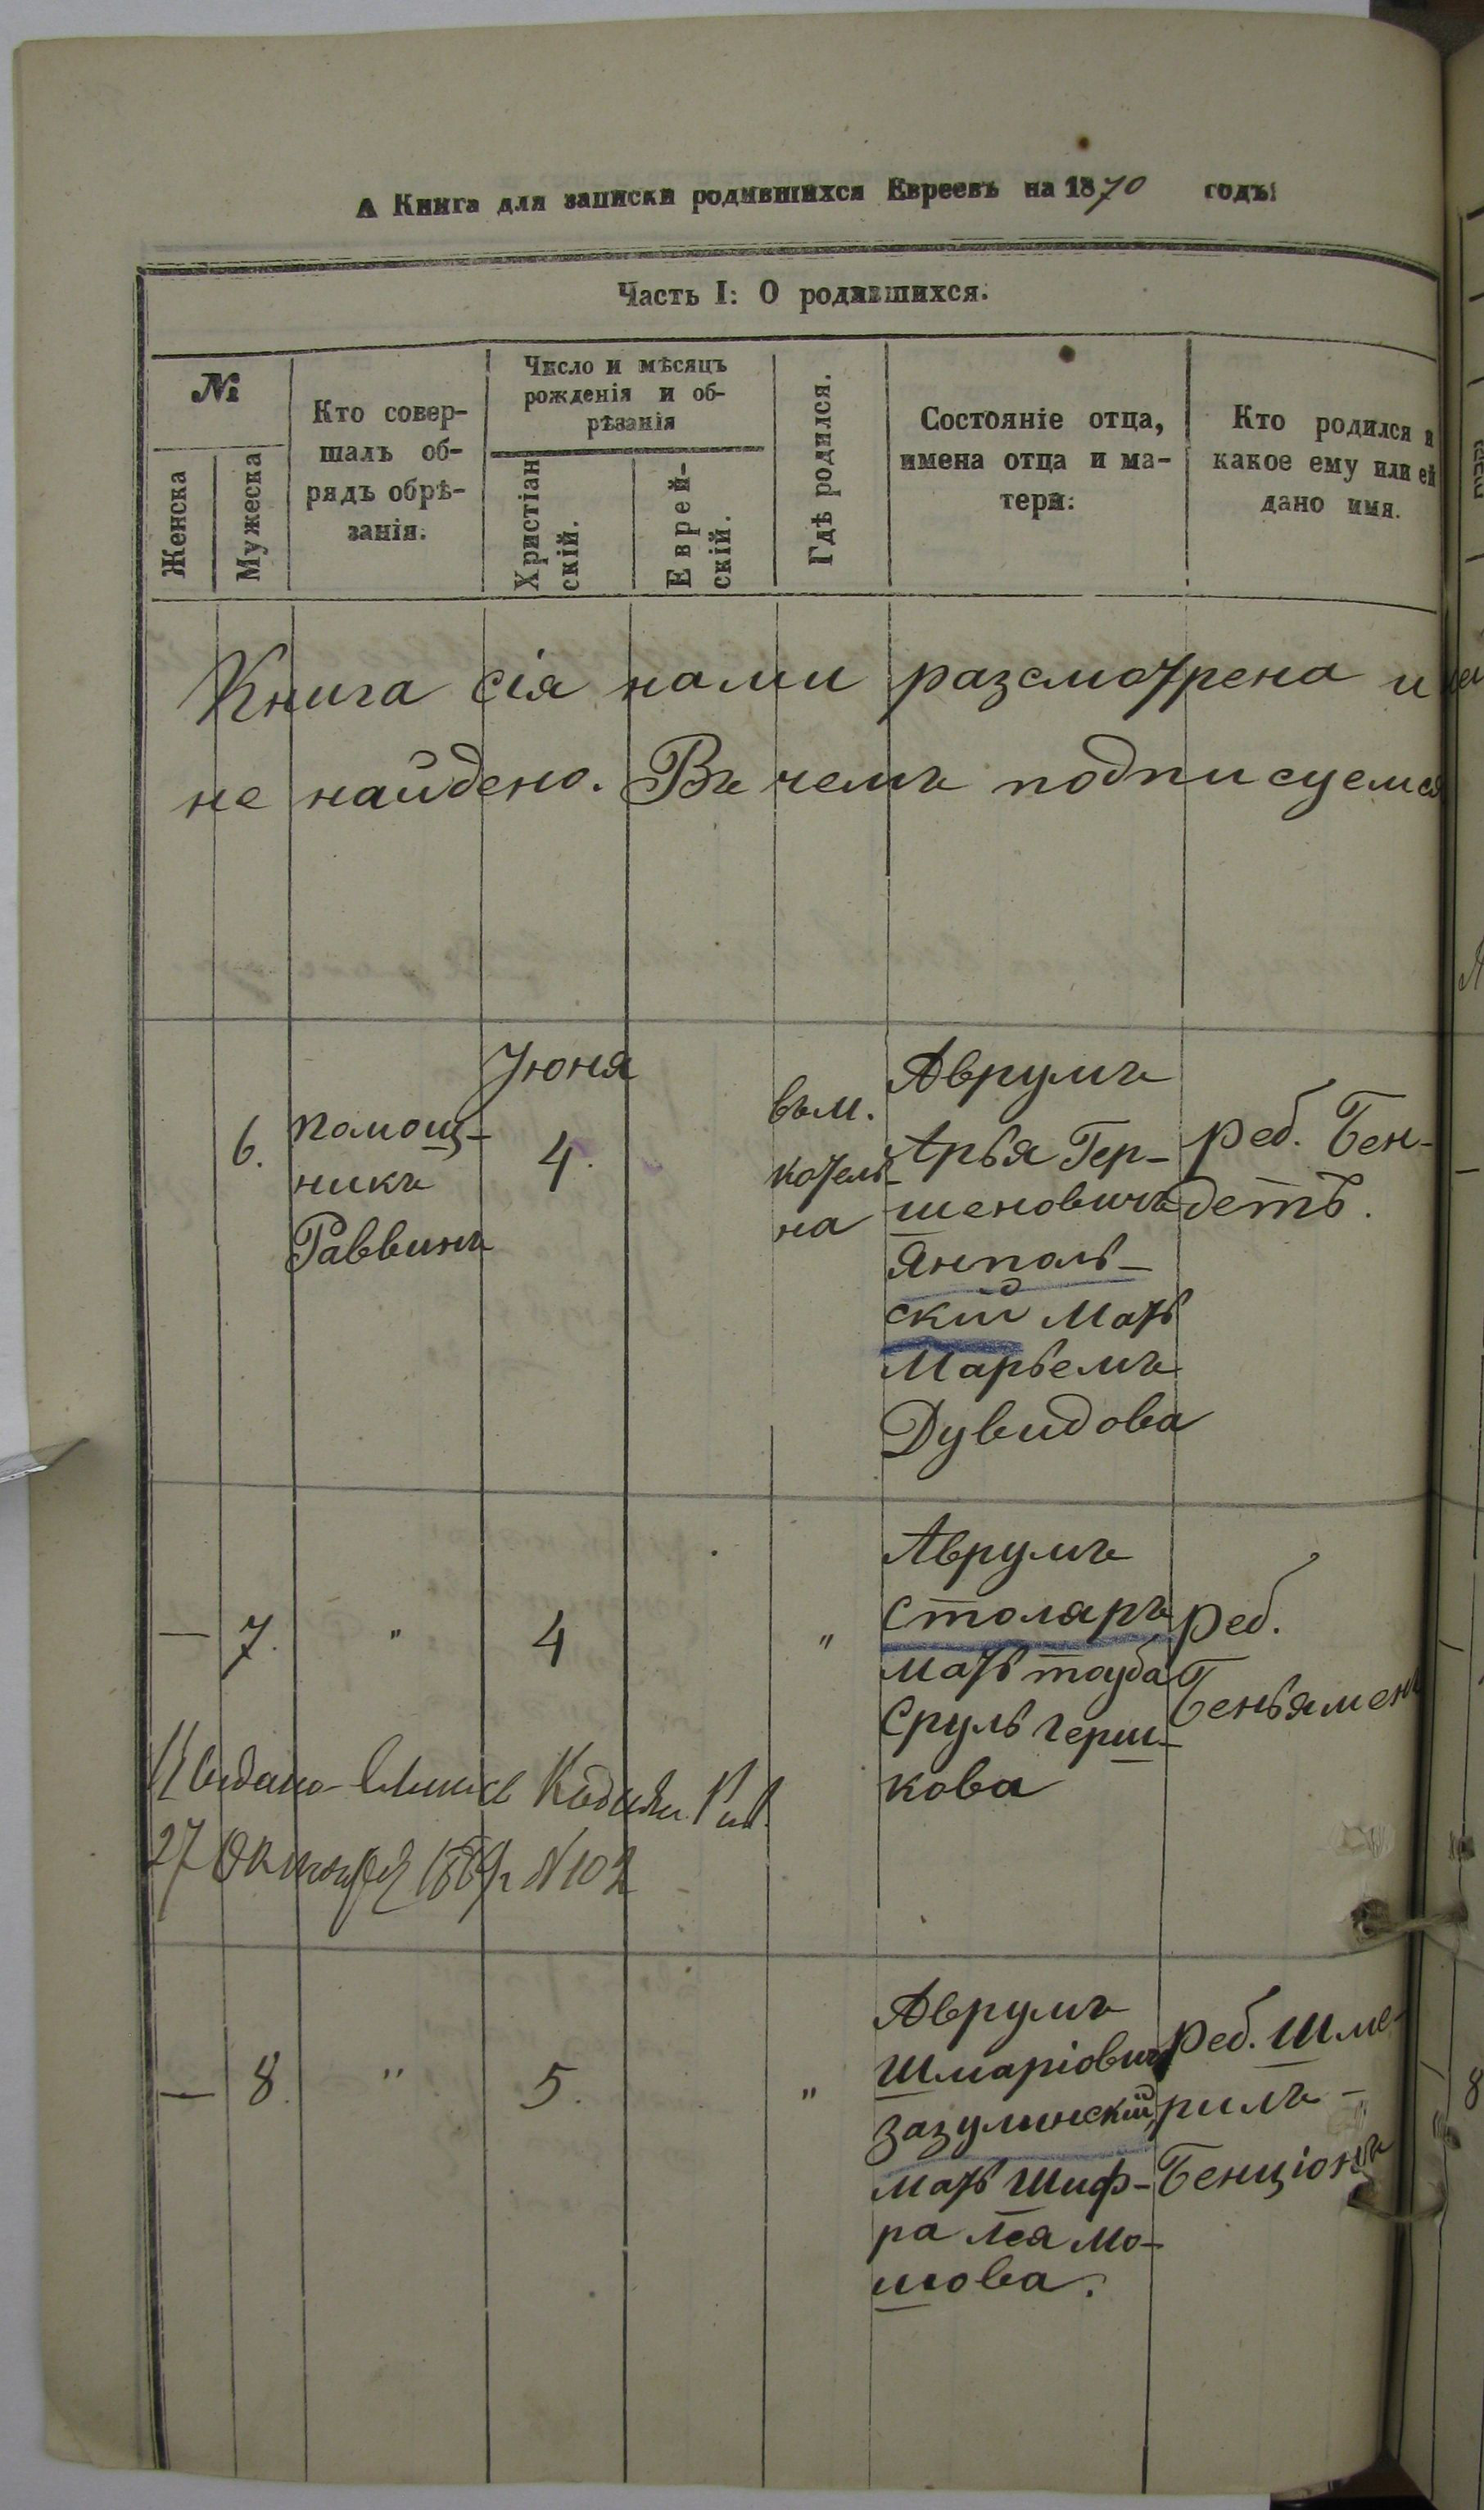 А Книга для записки родившихся Евреевъ на 1870 годъ:
Часть I: О родившихся.
№
Женска
Мужеска
Кто совер-
шалъ об-
рядъ обрѣ-
занія.
Число и мѣсяцъ
рожденія и об-
рѣзанія
Христіан
скій.
Еврей-
скій.
Гдѣ родился.
Состояніе отца,
имена отца и ма-
тери:
Кто родился и
какое ему или ей
дано имя.
Книга сія нами разсмотрена и
не найдено. Въ чемъ подписуемся
6.
помощ-
никъ
Раввинъ
Июня
4.
въ м.
котель-
на
Аврумъ
Арья Гер-
шеновичъ
Янполь-
скій мать
Марьемъ
Дувидова
реб. Бен-
детъ.
— 7. " 4 "
Аврумъ
Столяръ
мать тауба
Сруль герш-
кова
реб.
Беньямень
27 Октября N 102
— 8. " 5. "
Аврумъ
Шмаріовичъ
Зазулинскій
мать Шиф-
ра Лея Мо-
шова.
реб. Шме-
рилъ -
Бенціонъ